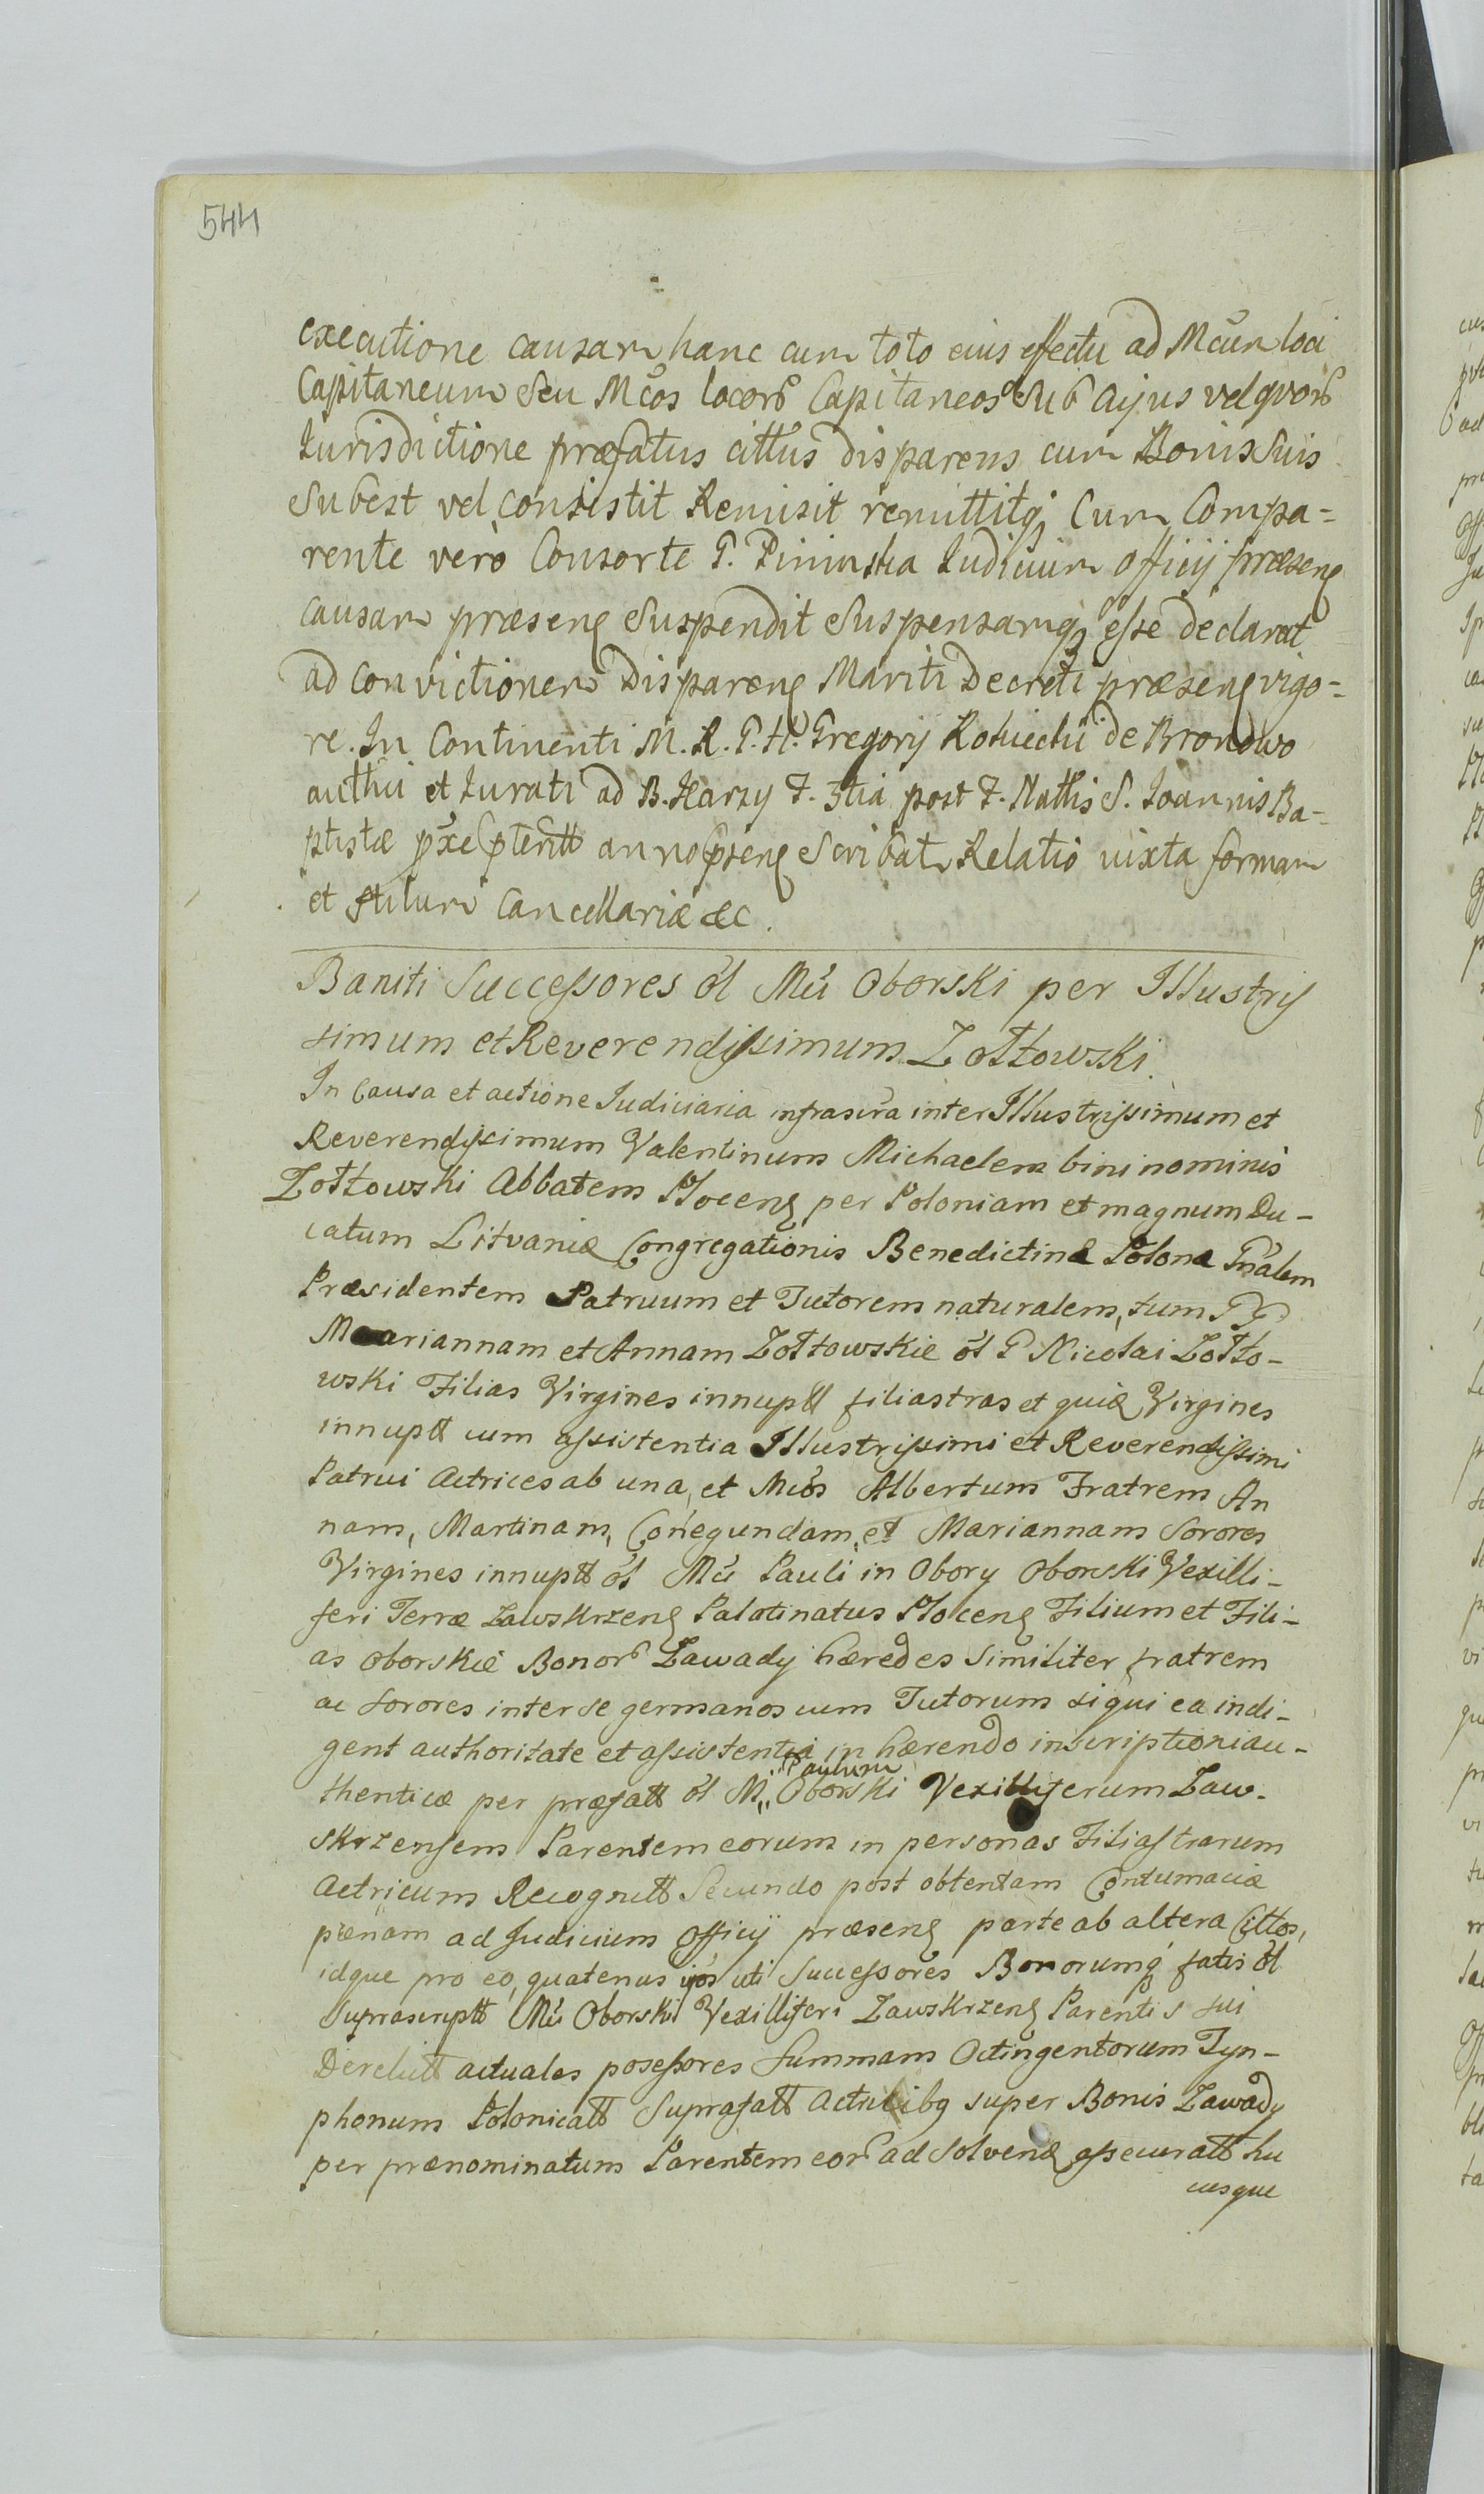 544
executione causam hanc cum toto eius effectu ad Mcum loci
Capitaneum Seu Mcos locorð Capitaneos Sub cujus vel qvorð
Iurisdictione præfatus cittus disparens cum Bonis Suis
Subest vel consistit Remisit remittitq; Cum Compa=
rente verò Consorte G. Pininska Iudicium officij præseng
causam præseng Suspendit Suspensamq; esse declarat
ad convictionem Dispareng Mariti Decreti præseng vigo=
re. In Continenti M. R. G. H. Gregorij de Bronowo
authci et Iurati ad B. Harsy F. 3tia post F. Nattis S. Ioannis Ba-
ptistæ pxe pteritt anno pseng Scribatr Relatio iuxta formam
et stilum Cancellariæ &c.
Baniti Successores ol Mci Oborski per Illustris
simum et Reverendissimum Zołtowski.
In Causa et actione Iudiciaria infrascra inter Illustrissimum et
Reverendissimum Valentinum Michaelem bini nominis
Zołtowski Abbatem Ploceng per Poloniam et magnum Du-
catum Litvaniæ Congregationis Benedictinæ Polonæ Gnalem
Præsidentem Patruum et Tutorem naturalem, tum GG
Mariannam et Annam Zołtowskie ol G Nicolai Zołto-
wski Filias Virgines innuptt filiastras et quia Virgines
innuptt cum assistentia Illustrissimi et Reverendissimi
Patrui Actrices ab una, et Mcos Albertum Fratrem An
nam, Martinam, Conegundam, et Mariannam Sorores
Virgines innuptt ol Mci Pauli in Obory Oborski Vexilli-
feri Terræ Zawskrzeng Palatinatus Ploceng Filium et Fili-
as Oborskie Bonorð Zawady hæredes similiter fratrem
ac sorores inter se germanos cum Tutorum siqui ea indi-
gent authoritate et assistentia in hærendo inscriptioni au-
Paulum
thenticæ per præfatt ol M,, Oborski Vexilliferum Zaw-
skrzensem Parentem eorum in personas Filiastrarum
Actricum Recognitt Secundo post obtentam Contumaciæ
pænam ad Judicium Officij præseng parte ab altera Cittos,
idque pro eo, quatenus ijos uti Successores Bonorumq fatis ol
suprascriptt Mci Oborski Vexilliferi Zawskrzeng Parentis sui
Derelictt actuales possessores Summam Octingentorum Tyn-
phonum Polonicall Suprafatt Actricibq super Bonis Zawady
per prænominatum Parentem eorð ad solvend assecuratt hu
cusque